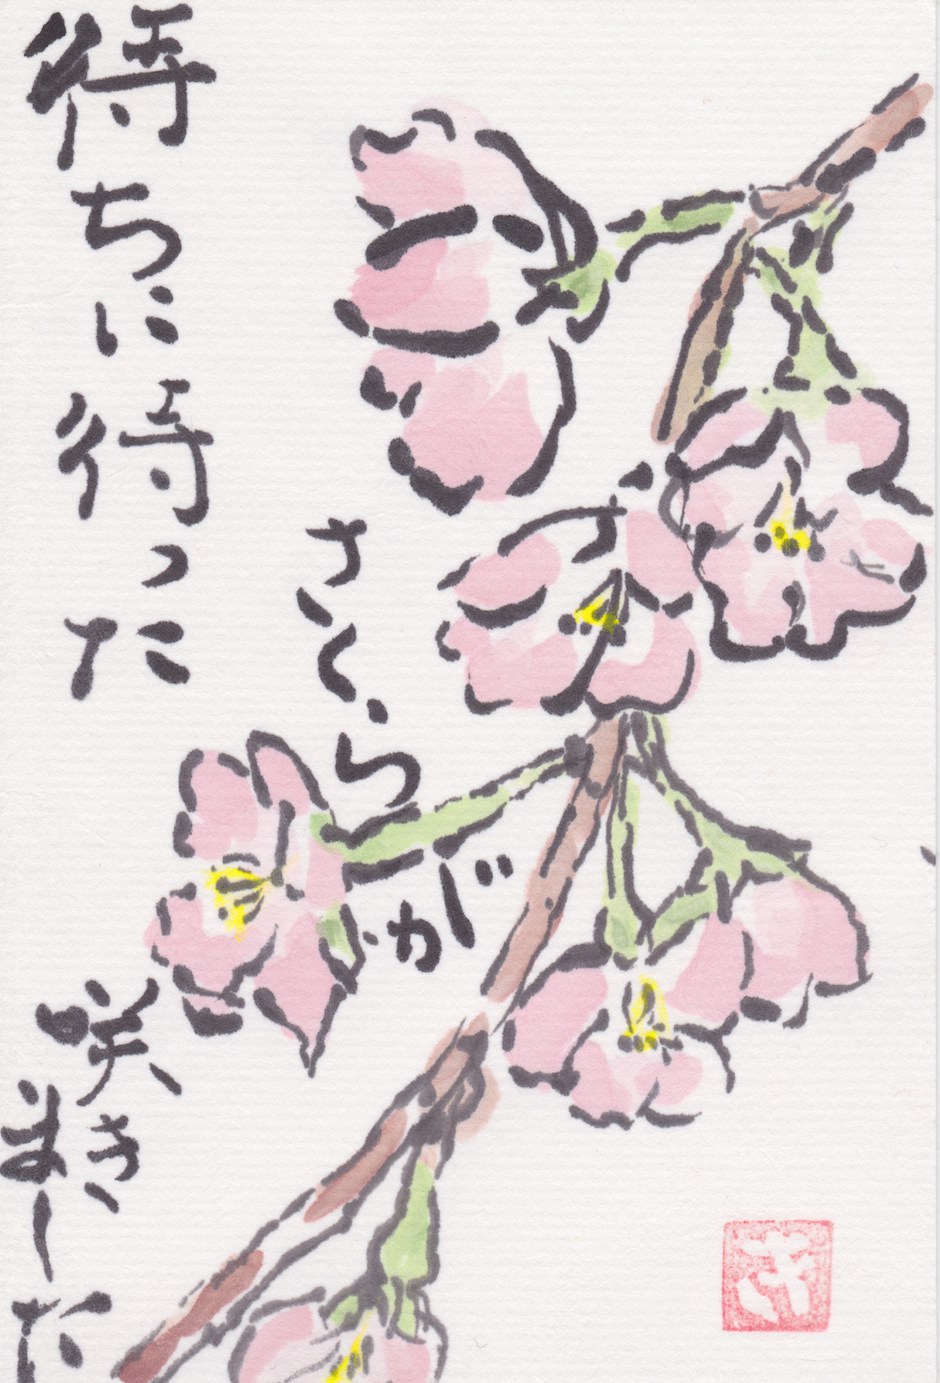 待ちに待った
さくら
が
咲き
ました